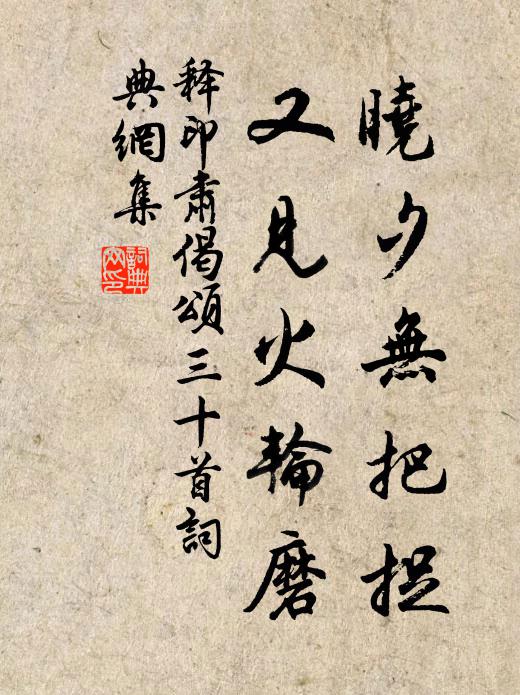 曉夕無把捉
又見火輪磨
释印肅偈頌三十首詞
典網集
詞典網印